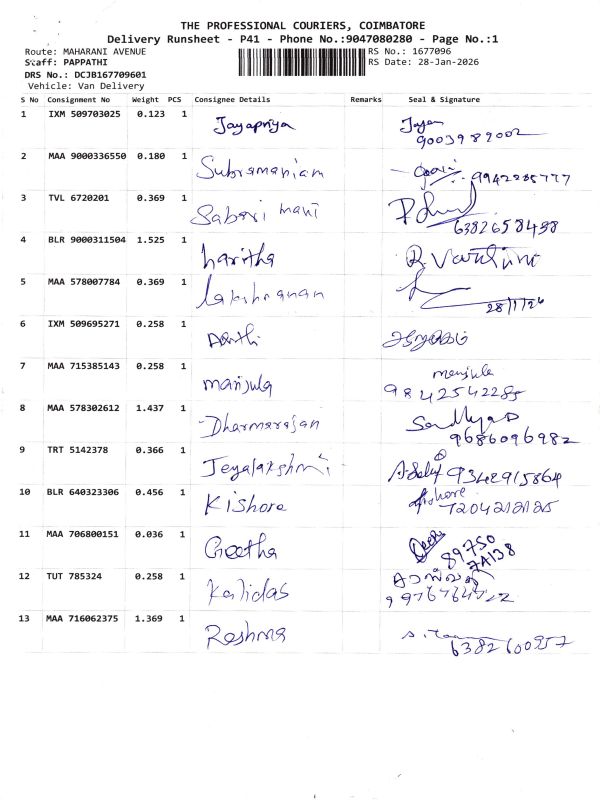 THE PROFESSIONAL COURIERS, COIMBATORE
Delivery Runsheet - P41 - Phone No.:9047080280 - Page No.:1
Route: MAHARANI AVENUE
RS No.: 1677096
Staff: PAPPATHI
RS Date: 28-Jan-2026
DRS No.: DCJB167709601
Vehicle: Van Delivery
S No Consignment No Weight PCS Consignee Details Remarks Seal & Signature
1 IXM 509703025 0.123 1 Jayapriya
9003989002
2 MAA 9000336550 0.180 1 Subramaniam
3 TVL 6720201 0.369 1 Sabari mani
6382658498
4 BLR 9000311504 1.525 1 haritha
5 MAA 578007784 0.369 1
28/1/26
6 IXM 509695271 0.258 1
7 MAA 715385143 0.258 1 manjula manjula
9842542285
8 MAA 578302612 1.437 1 Dharmarajan
9686096982
9 TRT 5142378 0.366 1 Jeyalakshmi 9342915864
10 BLR 640323306 0.456 1 Kishore Kishore
7204212125
11 MAA 706800151 0.036 1 Geetha
12 TUT 785324 0.258 1 Kalidas
13 MAA 716062375 1.369 1 Reshma
6382600957